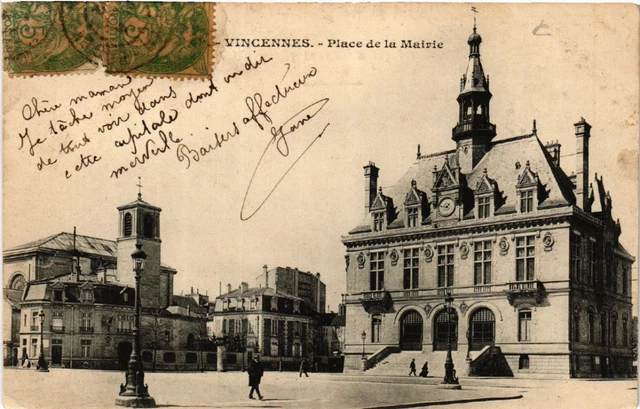 - VINCENNES. - Place de la Mairie
5
5
Chère maman
Je tâche moyen
de tout voir dans
cette capitale dont on dit
merveille
Baisers affectueux